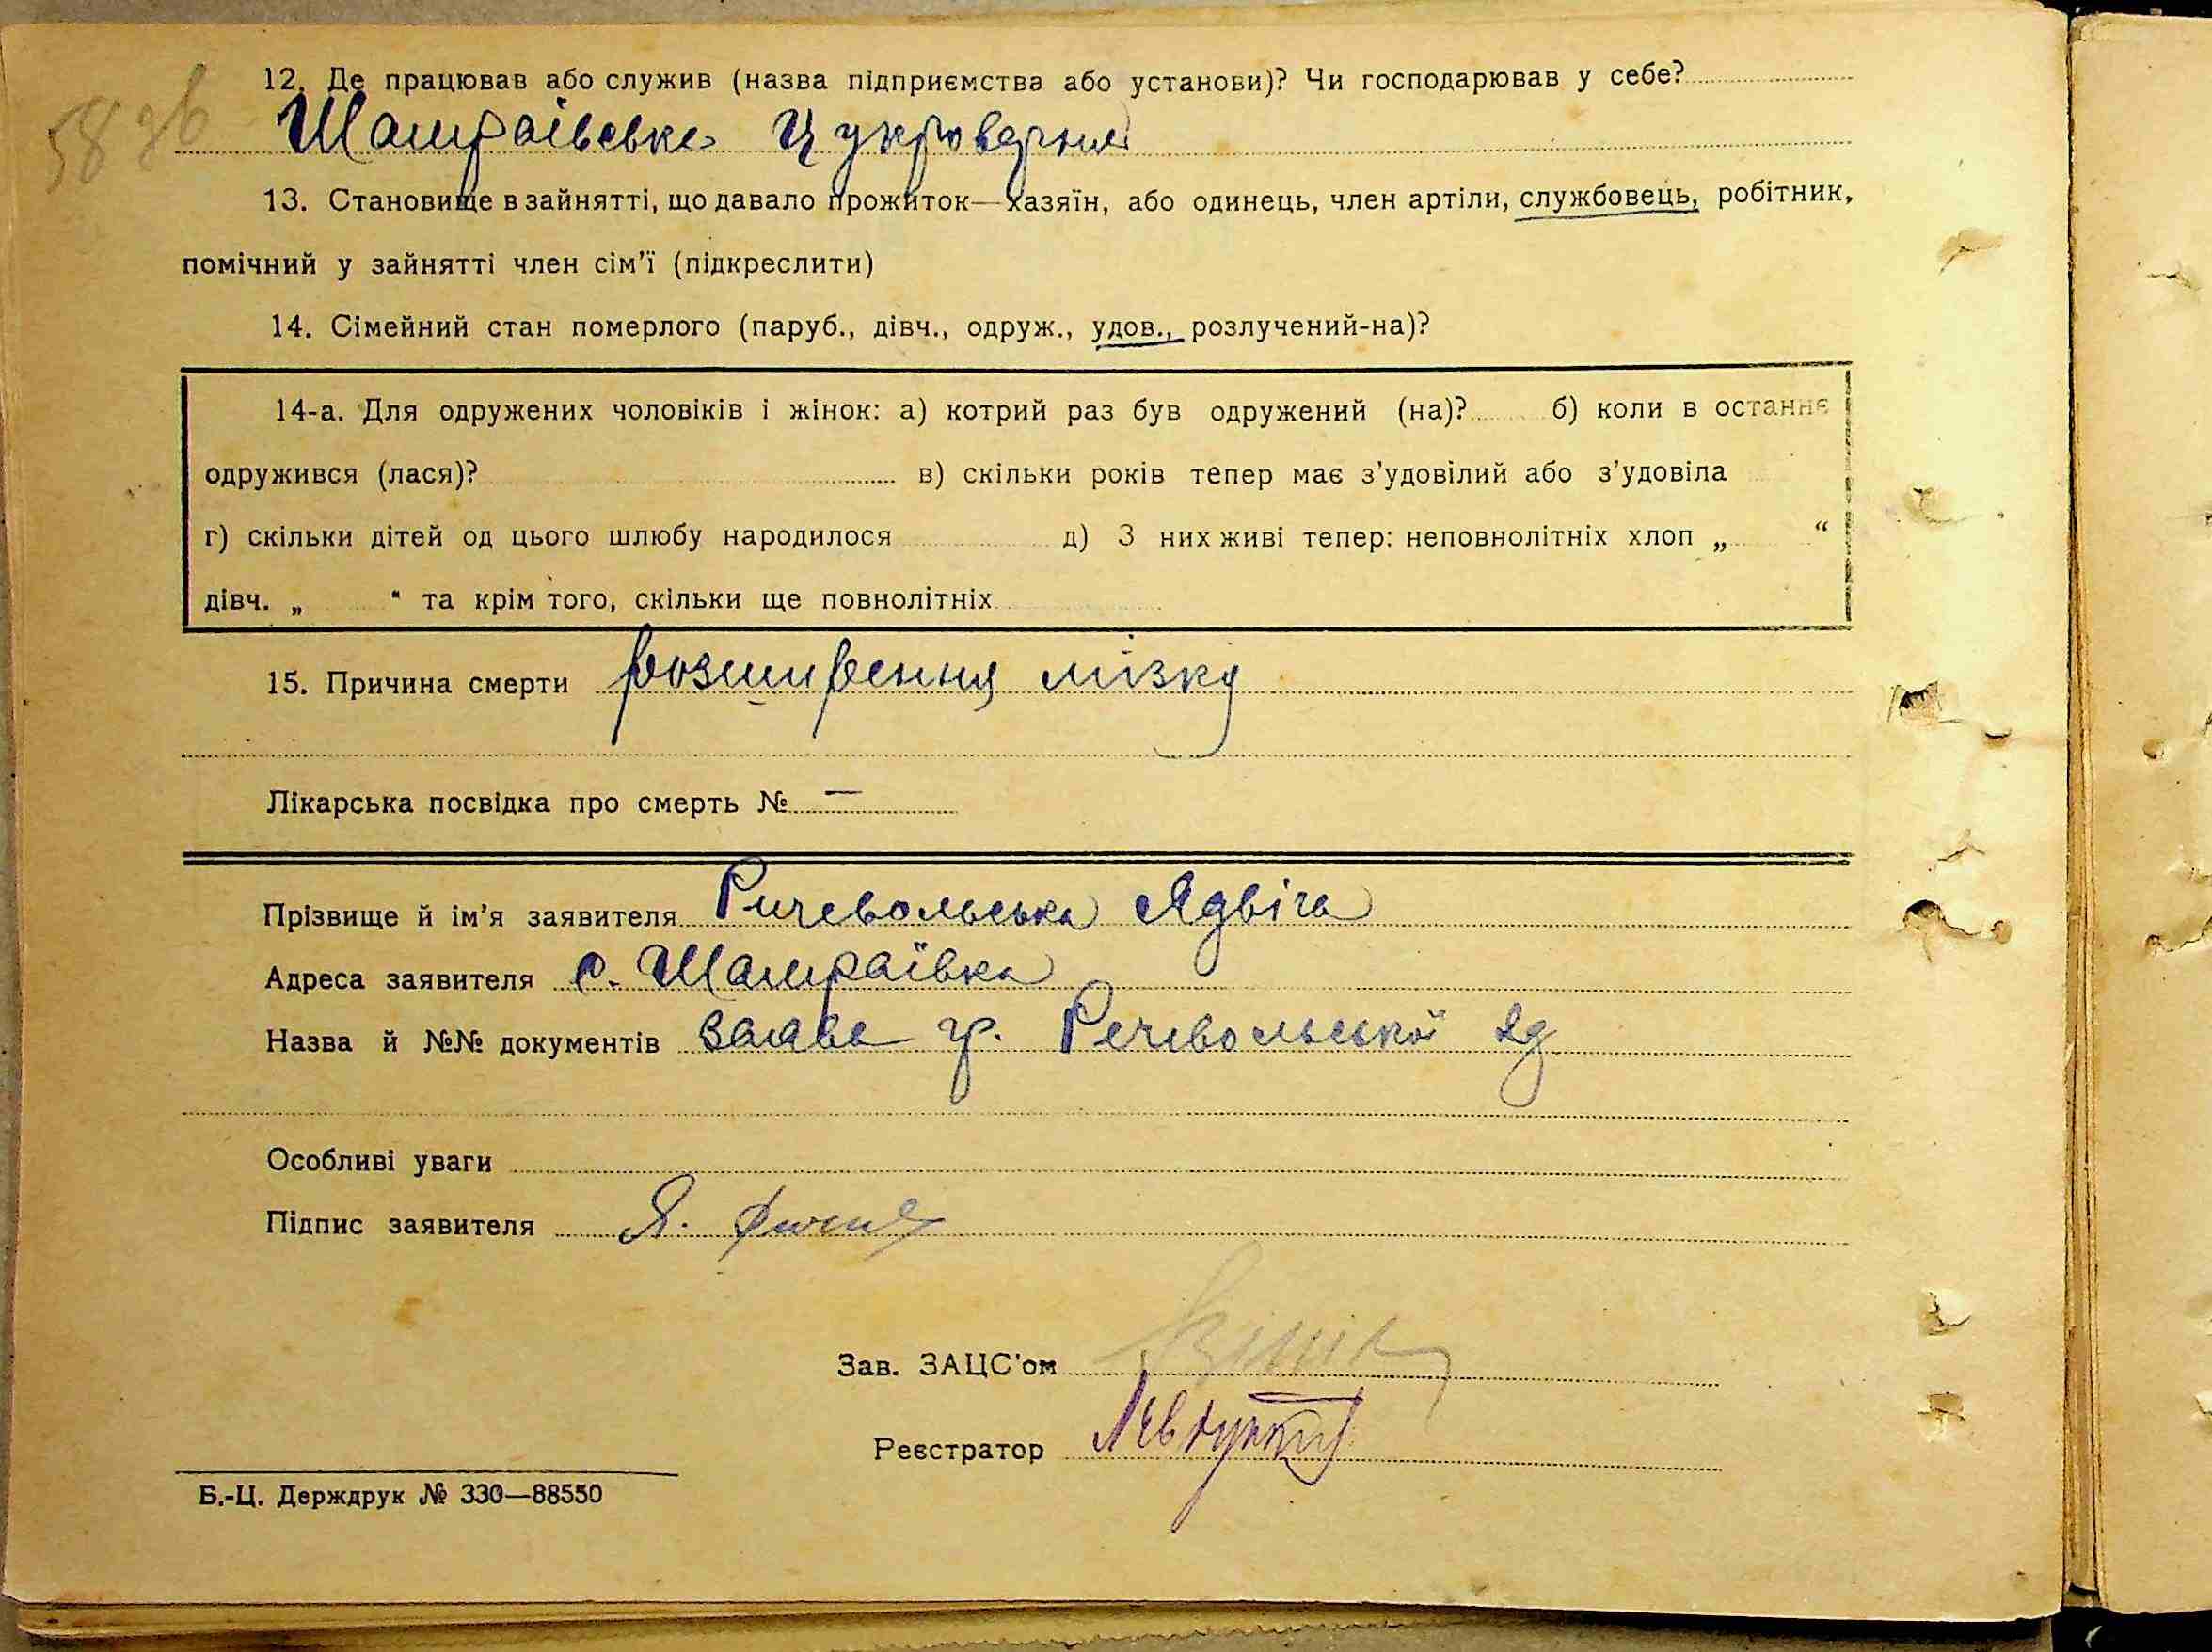 58зв
12. Де працював або служив (назва підприємства або установи)? Чи господарював у себе?
Шамраївська Цукроварня
13. Становище в зайнятті, що давало прожиток—хазяїн, або одинець, член артіли, службовець, робітник,
помічний у зайнятті член сім'ї (підкреслити)
14. Сімейний стан померлого (паруб., дівч., одруж., удов., розлучений-на)?
14-а. Для одружених чоловіків і жінок: а) котрий раз був одружений (на)? б) коли в останнє
одружився (лася)? в) скільки років тепер має з'удовілий або з'удовіла
г) скільки дітей од цього шлюбу народилося д) З них живі тепер: неповнолітніх хлоп „ “
дівч. „ “ та крім того, скільки ще повнолітніх
15. Причина смерти розширення мізку
Лікарська посвідка про смерть № —
Прізвище й ім'я заявителя Ричевольська Ядвіга
Адреса заявителя с. Шамраївка
Назва й №№ документів заява гр. Речевольської Яд
Особливі уваги
Підпис заявителя Я.
Зав. ЗАЦС'ом
Реєстратор
Б.-Ц. Держдрук № 330—88550